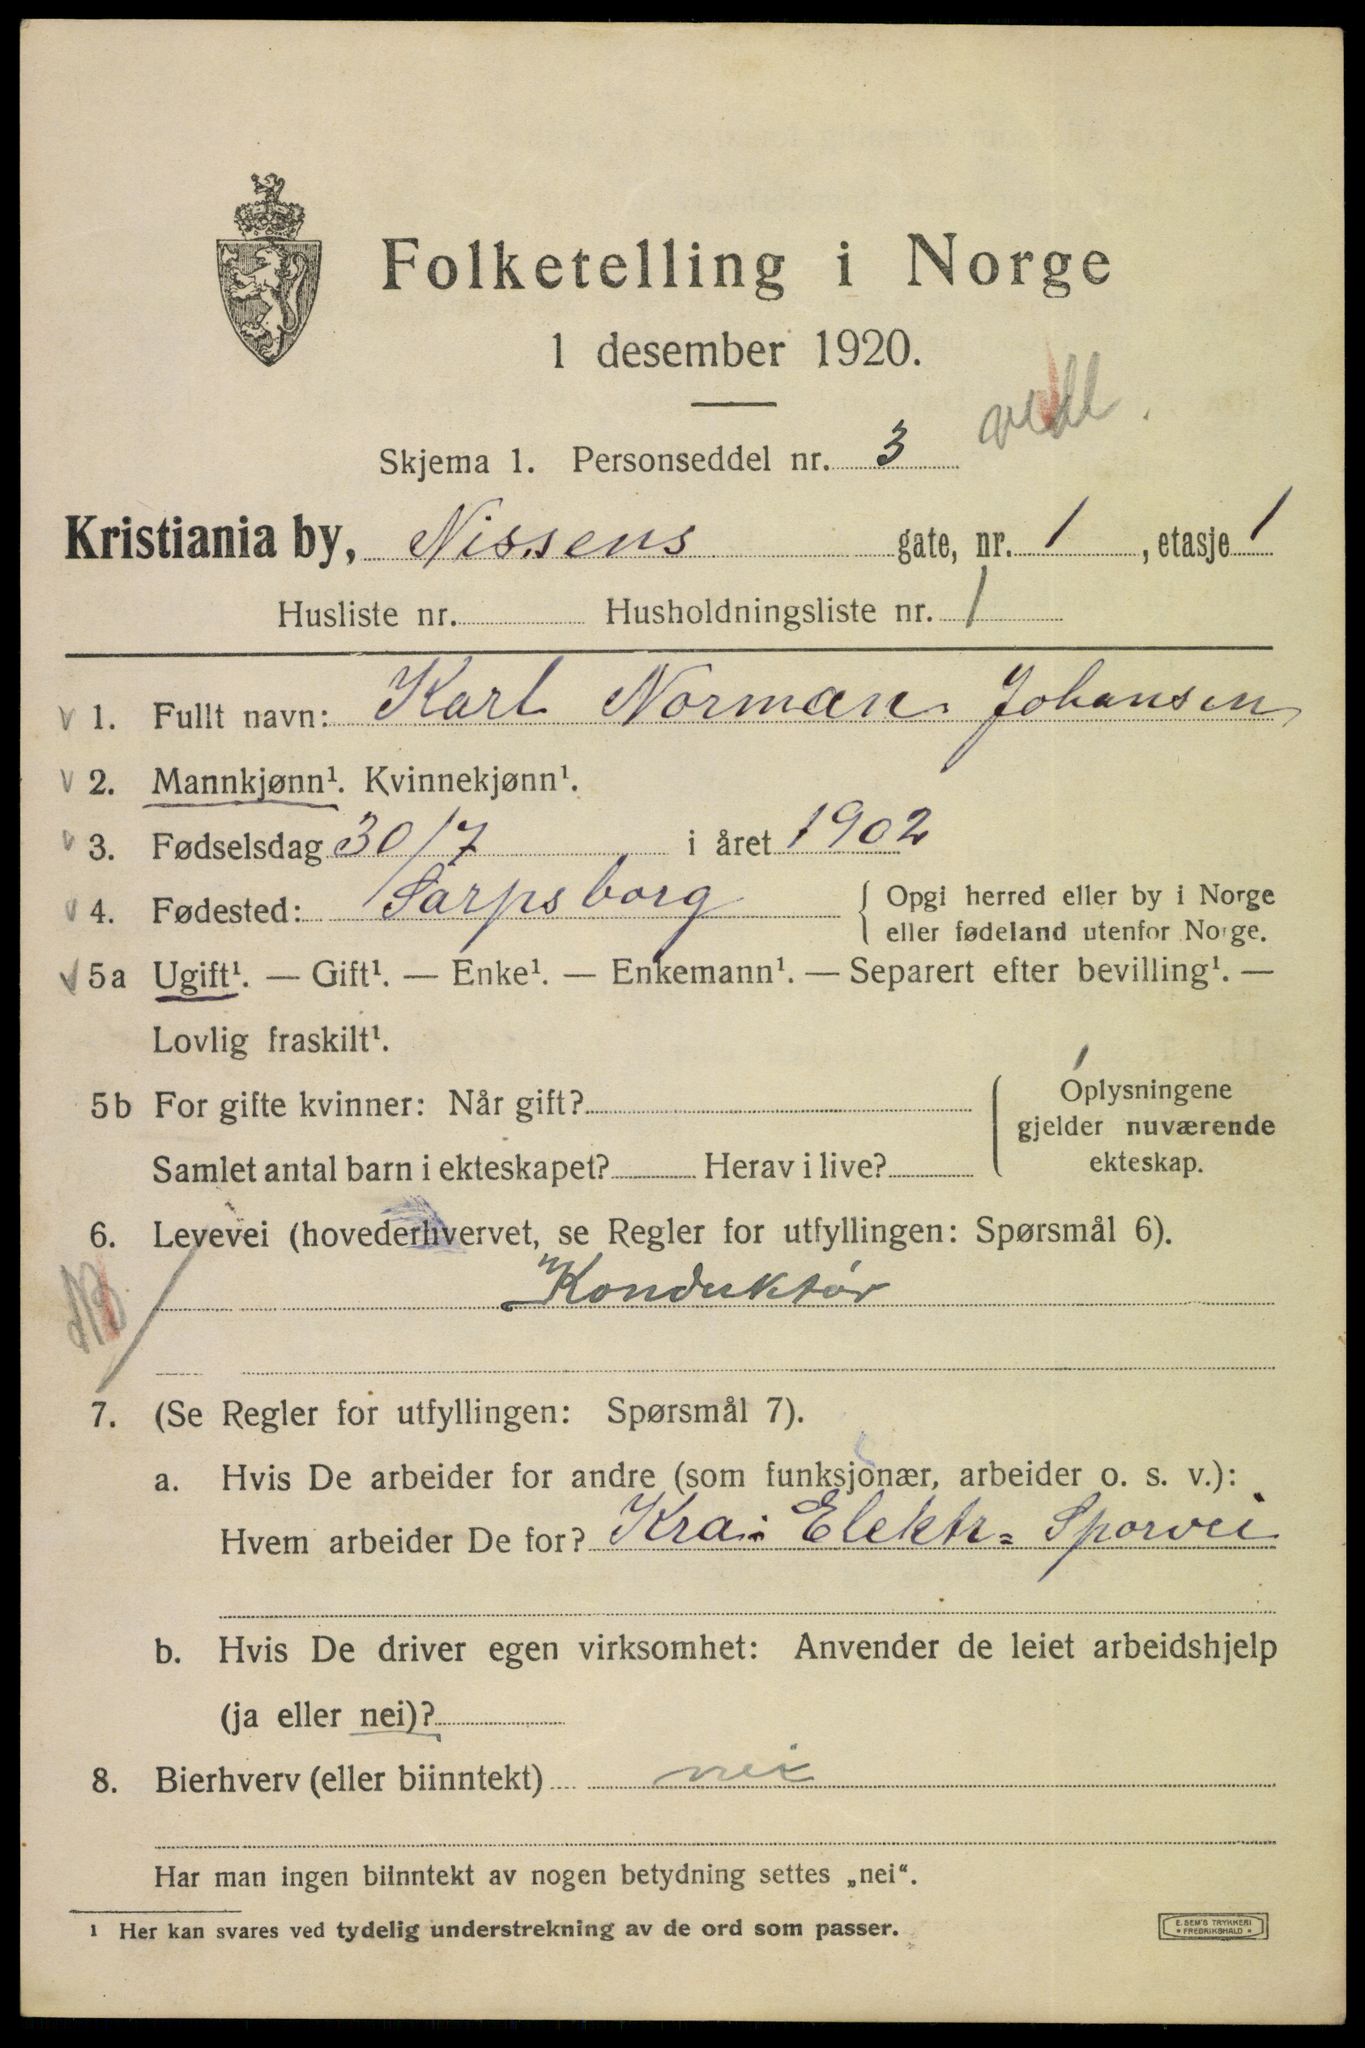 Folketelling i Norge
1 desember 1920.
Skjema 1. Personseddel nr. 3
Kristiania by, Nissens gate, nr. 1, etasje 1
Husliste nr. Husholdningsliste nr. 1
v 1. Fullt navn: Karl Norman Johansen
v 2. Mannkjønn¹. Kvinnekjønn¹.
v 3. Fødselsdag 30/7 i året 1902
v 4. Fødested: Sarpsborg { Opgi herred eller by i Norge
eller fødeland utenfor Norge.
v 5a Ugift¹. — Gift¹. — Enke¹. — Enkemann¹. — Separert efter bevilling¹. —
Lovlig fraskilt¹.
5b For gifte kvinner: Når gift? { Oplysningene
gjelder nuværende
ekteskap.
Samlet antal barn i ekteskapet? Herav i live?
6. Levevei (hovederhvervet, se Regler for utfyllingen: Spørsmål 6).
Konduktør
7. (Se Regler for utfyllingen: Spørsmål 7).
a. Hvis De arbeider for andre (som funksjonær, arbeider o. s. v.):
Hvem arbeider De for? Kra: Elektr= Sporvei
b. Hvis De driver egen virksomhet: Anvender de leiet arbeidshjelp
(ja eller nei)?
8. Bierhverv (eller biinntekt) nei
Har man ingen biinntekt av nogen betydning settes „nei“.
¹ Her kan svares ved tydelig understrekning av de ord som passer.
E. SEM'S TRYKKERI
* FREDRIKSHALD *